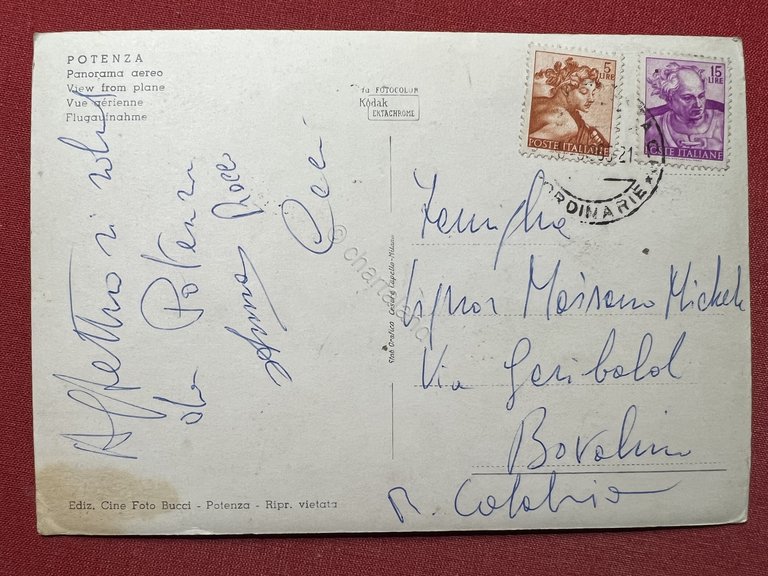 POTENZA
Panorama aereo
View from plane
Vue aérienne
Flugaufnahme
da FOTOCOLOR
Kodak
EKTACHROME
5
LIRE
POSTE ITALIANE
15
LIRE
POSTE ITALIANE
-21
ORDINARIE
Affettuosi saluti
da Potenza
Rocco
Famiglia
Signor Maisano Michele
Via Garibaldi
Bovalino
R. Calabria
Stab. Grafico Cesare Capello - Milano
Ediz. Cine Foto Bucci - Potenza - Ripr. vietata